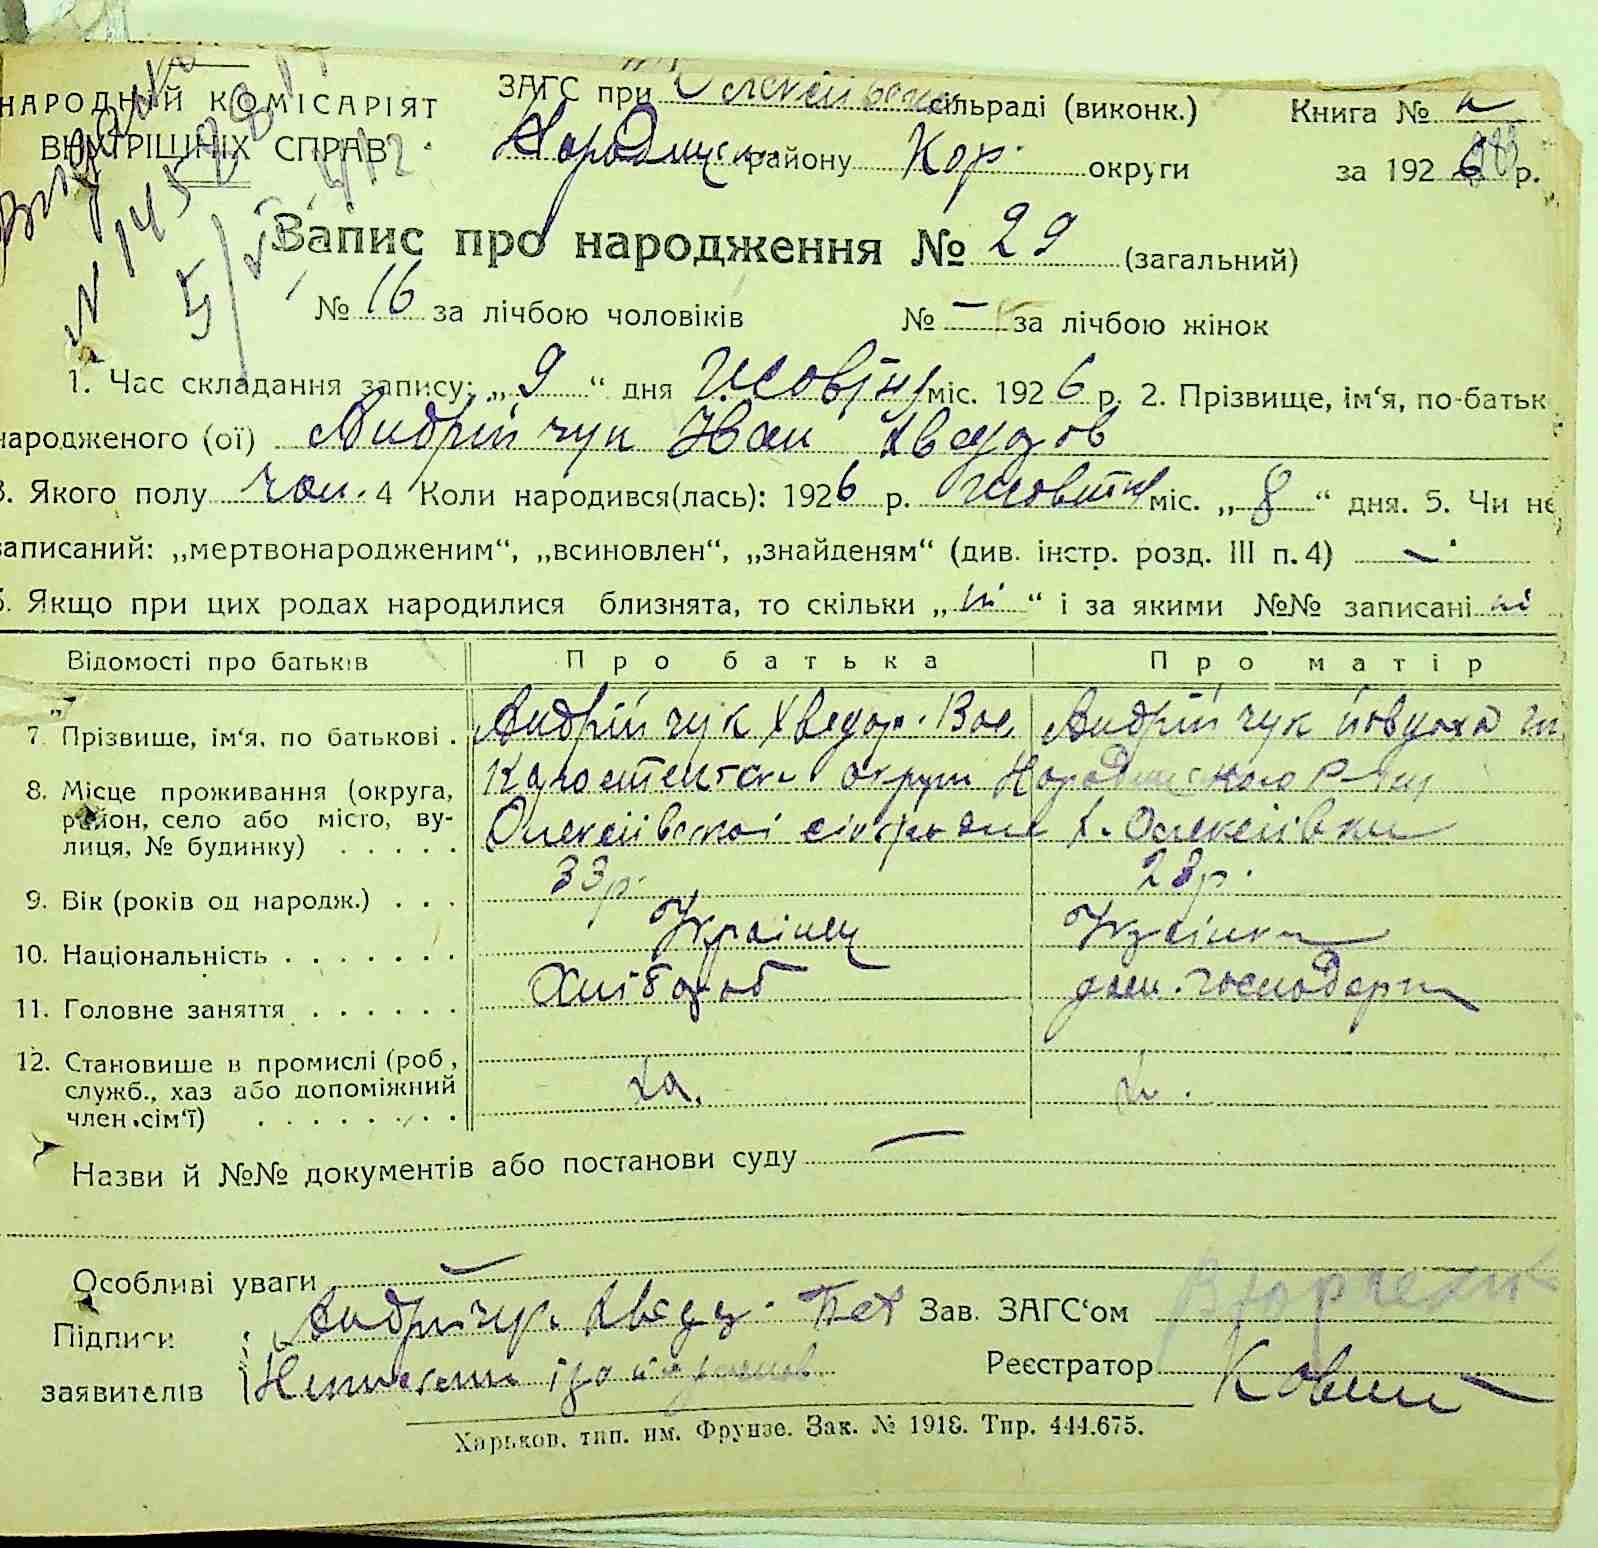 НАРОДНИЙ КОМІСАРІЯТ
ВНУТРІШНІХ СПРАВ
ЗАГС при сільраді (виконк.)
Книга №
району Кор. округи
за 1926 р.
N 5/V
Запис про народження № 29 (загальний)
№ 16 за лічбою чоловіків № — за лічбою жінок
1. Час складання запису: „9“ дня Жовтня міс. 1926 р. 2. Прізвище, ім‘я, по-батьк
народженого (ої) Андрійчук Іван Хведоров
3. Якого полу чол. 4 Коли народився(лась): 1926 р. Жовтня міс. „8“ дня. 5. Чи не
записаний: „мертвонародженим“, „всиновлен“, „знайденям“ (див. інстр. розд. III п. 4) —
6. Якщо при цих родах народилися близнята, то скільки „ні“ і за якими №№ записані ні
Відомості про батьків Про батька Про матір
7. Прізвище, ім‘я, по батькові . Андрійчук Хведор. Вас. Андрійчук
8. Місце проживання (округа, район, село або місто, вулиця, № будинку) . . . . .
Коростенська округи Народицького р-ну
Олексіївської сільради х. Олексіївка
9. Вік (років од народж.) . . . 33 р. 23 р.
10. Національність . . . . . . . Українец Українка
11. Головне заняття . . . . . . Хлібороб дом. господарка
12. Становище в промислі (роб., служб., хаз або допоміжний член сім‘ї) . . . . . . . ха.
Назви й №№ документів або постанови суду —
Особливі уваги —
Підписи Андрійчук Хведор Зав. ЗАГС‘ом
заявителів Реєстратор
Харьков, тип. им. Фрунзе. Зак. № 1918. Тир. 444.675.